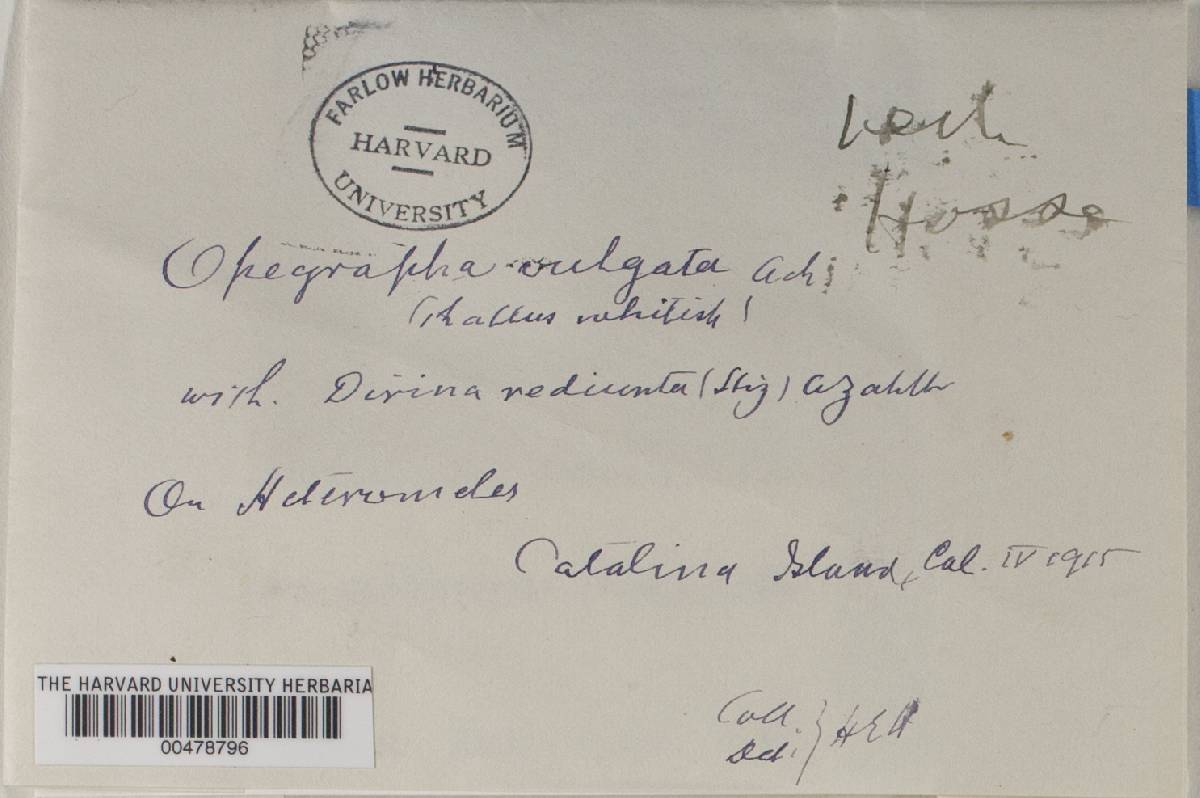 FARLOW HERBARIUM
HARVARD
UNIVERSITY
Hasse
Opegrapha vulgata Ach;
(thallus whitish)
with. Dirina rediunta (Stiz) Azahlb
On Heteromeles
Catalina Island, Cal. IV 1915
THE HARVARD UNIVERSITY HERBARIA
00478796
Coll.
Det. } HEH